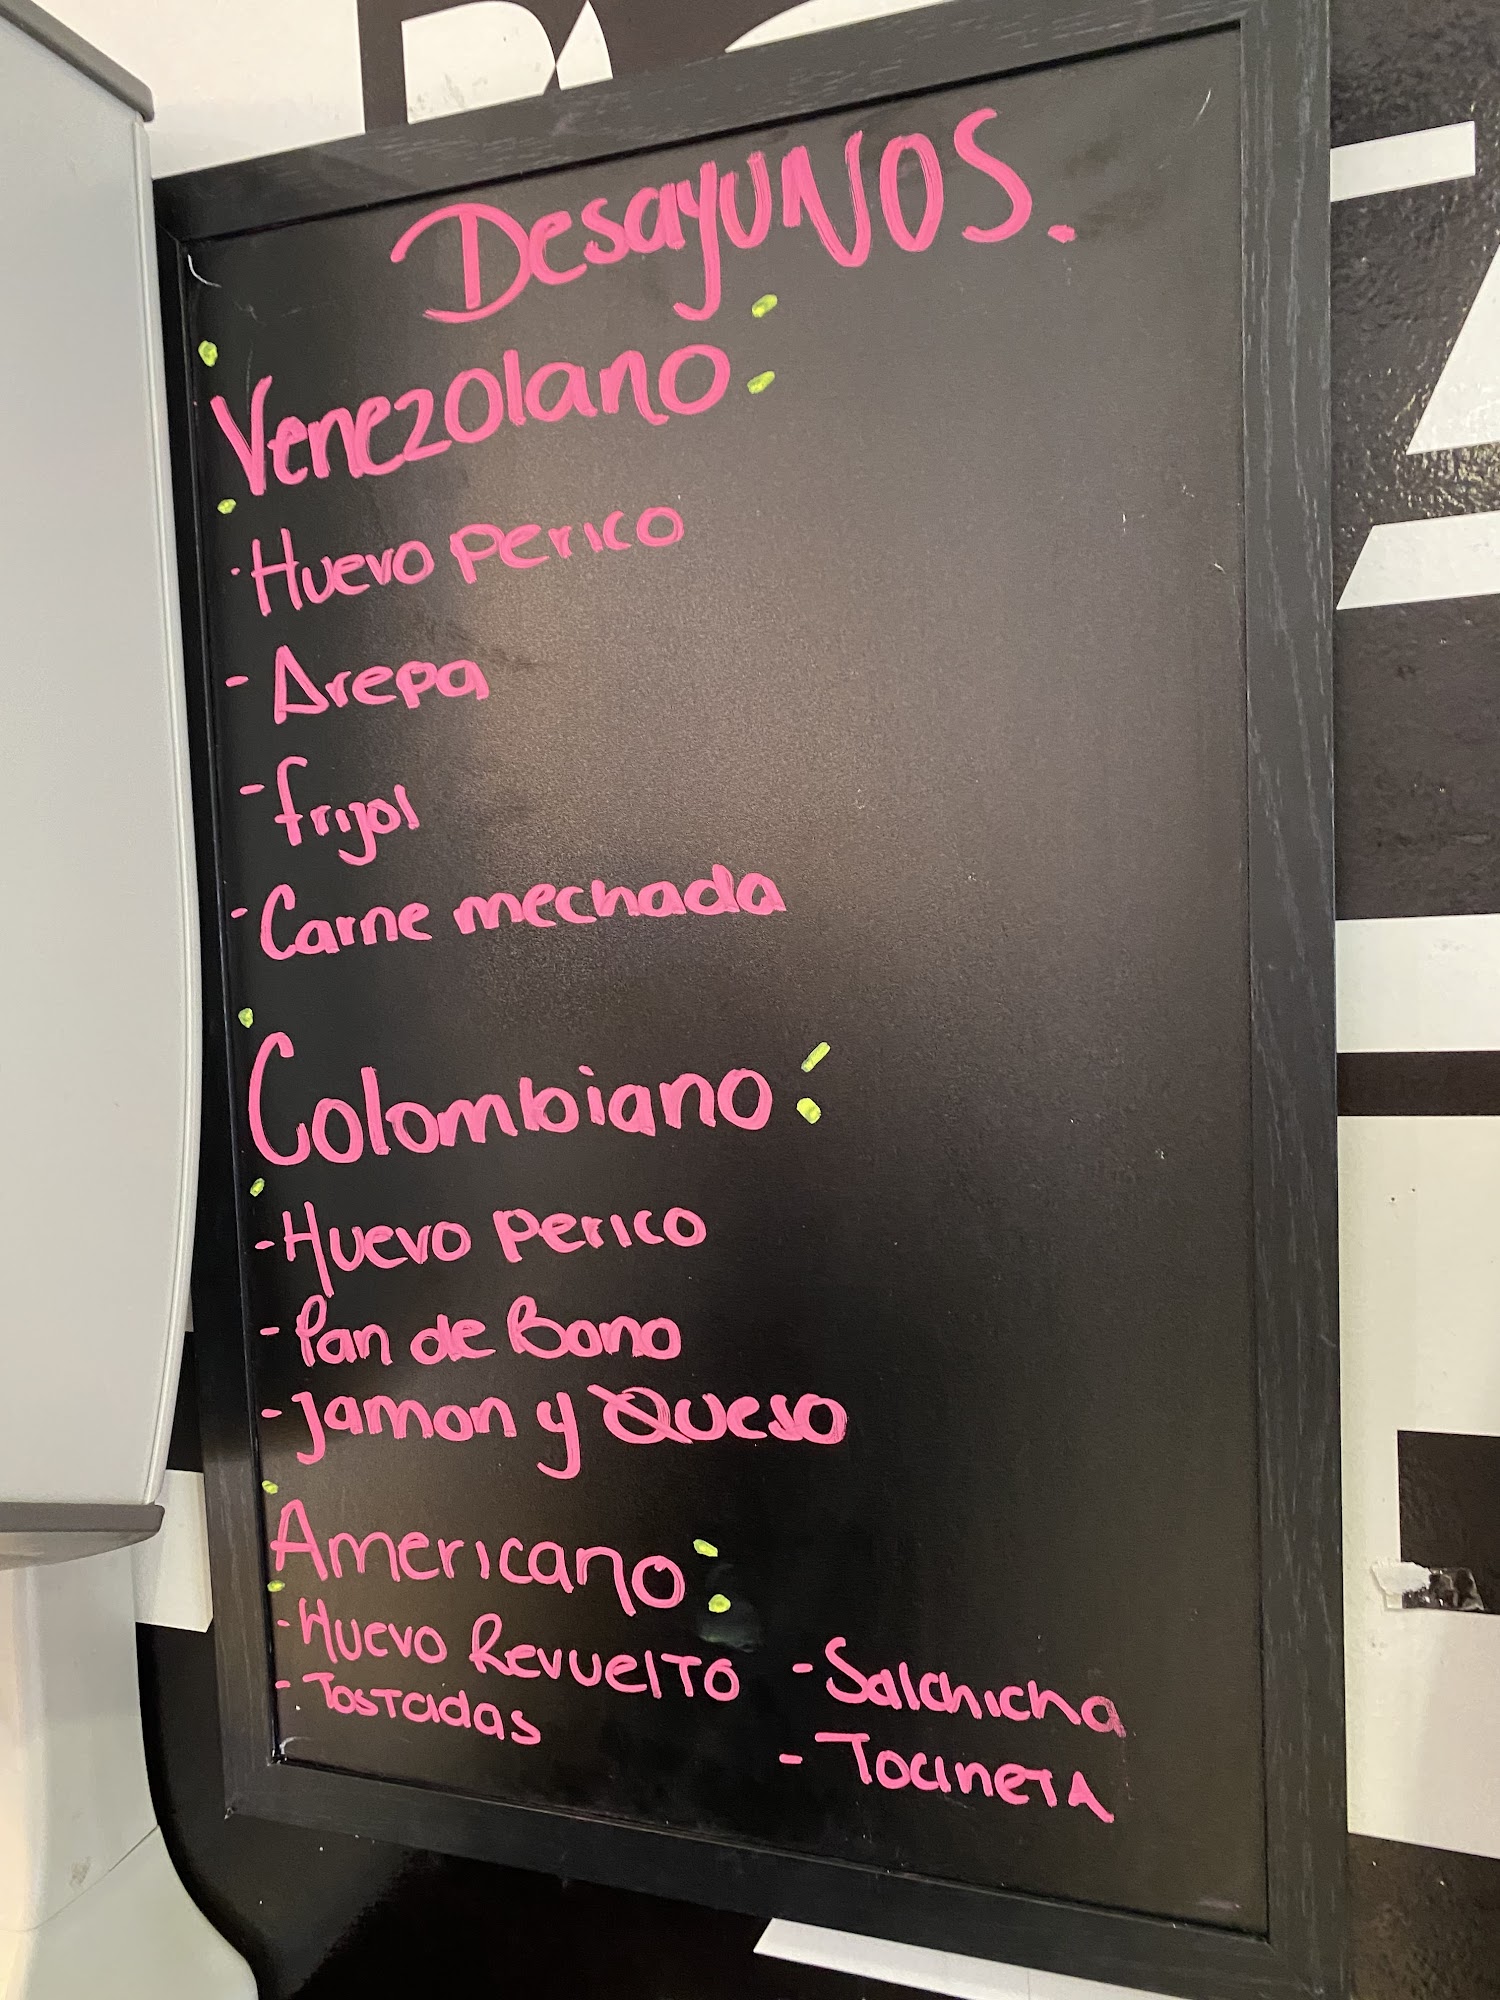 DesayUNOS.
Venezolano:
· Huevo perico
- Arepa
- frijol
- Carne mechada
Colombiano:
- Huevo perico
- Pan de Bono
- Jamon y Queso
Americano:
- Huevo Revuelto
- Tostadas
- Salchicha
- Tocineta